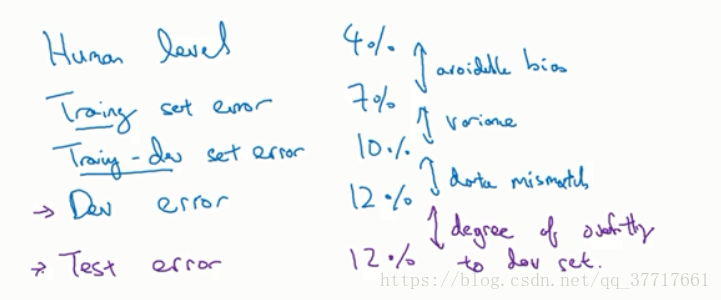 Human level 4%
avoidable bias
Training set error 7%
variance
Training-dev set error 10%
data mismatch
→ Dev error 12%
degree of overfitting
→ Test error 12% to dev set.
https://blog.csdn.net/qq_37717661